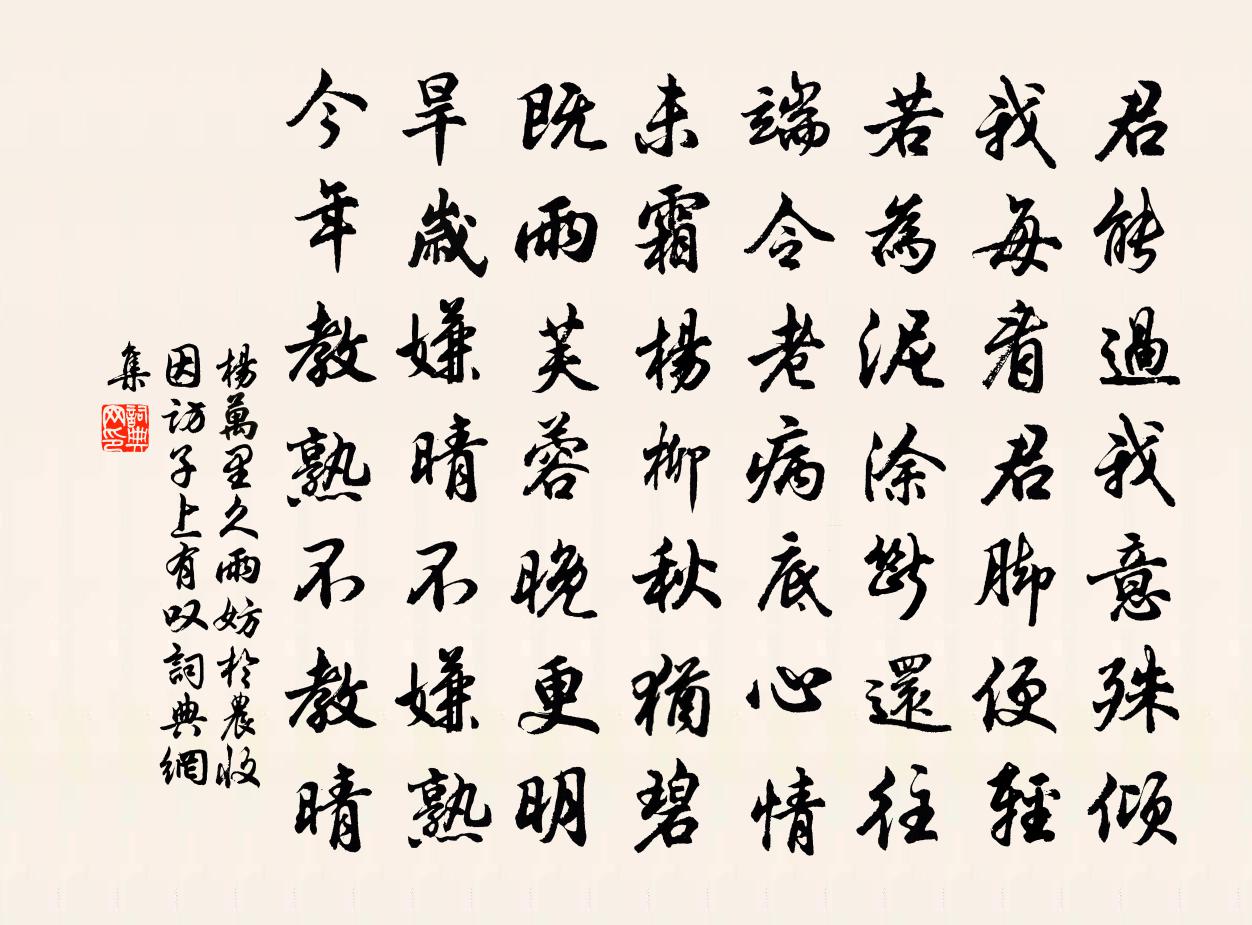 君能過我意殊傾
我每看君脚便輕
若為泥涂斷還往
端令老病底心情
未霜楊柳秋猶碧
既雨芙蓉晚更明
旱歲嫌晴不嫌熟
今年教熟不教晴
楊萬里久雨妨於農收
因訪子上有叹詞典網
集
詞典
网印